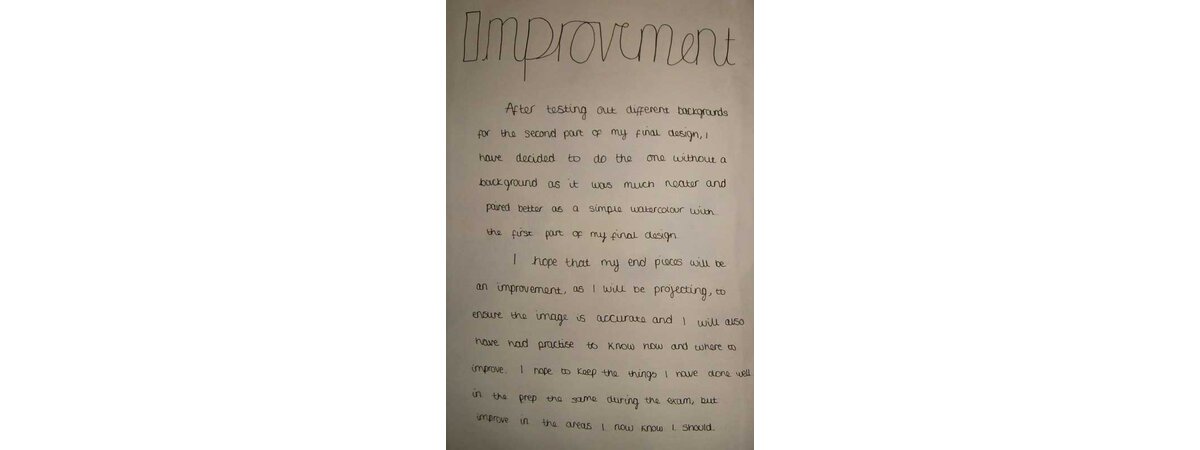 Improvement
After testing out different backgrounds
for the second part of my final design, I
have decided to do the one without a
background as it was much neater and
paired better as a simple watercolour with
the first part of my final design
I hope that my end pieces will be
an improvement, as I will be projecting, to
ensure the image is accurate and I will also
have had practise to know how and where to
improve. I hope to keep the things I have done well
in the prep the same during the exam, but
improve in the areas I now know I should.